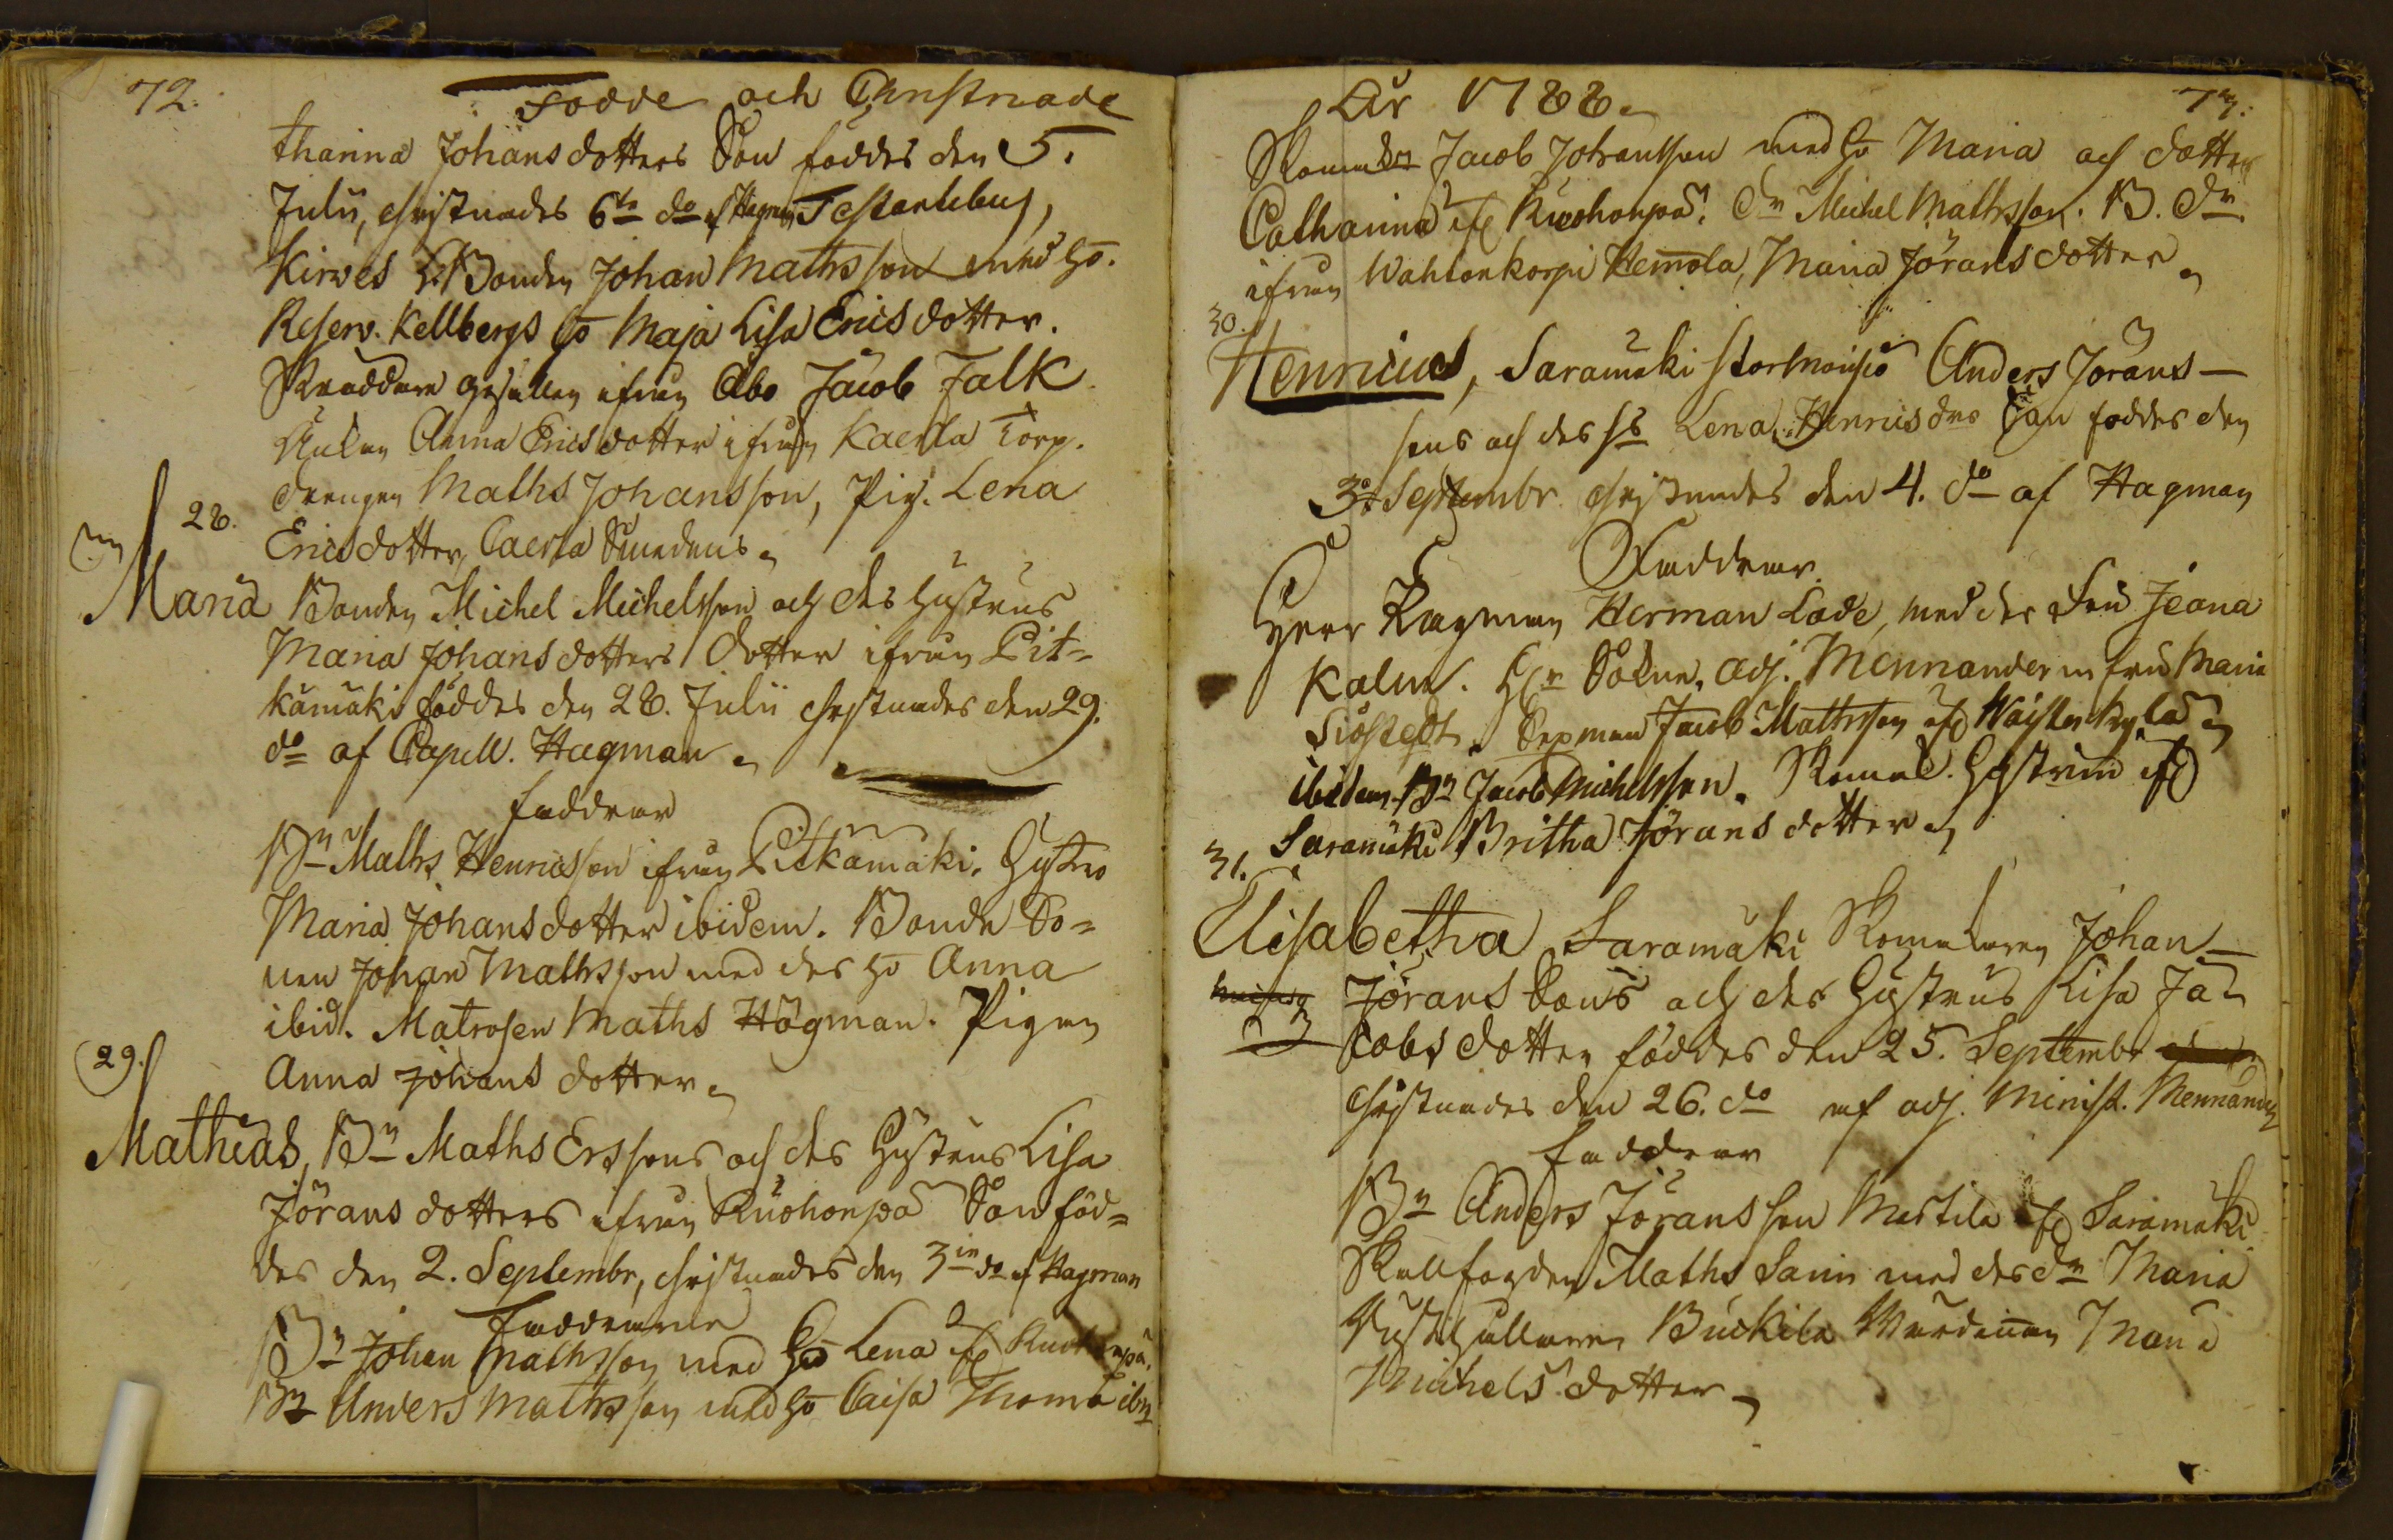 72.
Födde och Christnade
tharina Johansdotters Son föddes den 5.
Julii, christnades 6te do af Hagman Testantibus,
Kirves Bonden Johan Mathsson med Ho.
Reserv. Kellbergs Ho Maja Lisa Ericsdotter.
Skräddare gesällen ifrån Åbo Jacob Falk
Anna Ericsdotter ifrån Kaerla Torp.
Drengen Maths Johansson, Pig. Lena
28.
Ericsdotter, Caerla
Maria Bonden Michel Michelsson och des Hustrus
Maria Johansdotters Dotter ifrån Pit=
kämäki föddes den 28. Julii christnades den 29.
do af Capell. Hagman
faddrar
Bn Maths Henricsson ifrån Pitkämäki. Hustro
Maria Johansdotter ibidem. Bonde So=
nen Johan Mathsson med des Ho Anna
ibid. Matrosen Maths Högman. Pigan
29.
Anna Johans dotter
Mathias, Bn Maths Erssons och des Hustrus Lisa
Jörans dotters ifrån Ruohonpä Son föd=
des den 2. Septembr, christnades den 3in do af Hagman
Faddrarne
Bn Johan Mathsson med Ho Lena if Ruohonpä.
Bn Anders Mathsson med Ho Caisa Thoma ibm
År 1788.
73.
Jacob Johansson med Ho Maria och dotter
Catharina if Ruohonpä. Dn Michel Mathsson. B. Dn
ifrån Wahtonkorpi Hemola, Maria Jöransdotter
30.
Henricus, Saramäki Anders Jörans-
sons och des Lena Henricsdrs Son föddes den
3. Septembr christnades den 4. do af Hagman
Faddrar.
Herr Herman Lode, med des Fru Jeana
Kalm. Hr Sokne. Adj. Mennander m fru Maria
Siöstedt. Sexman Jacob Mathsson if
ibidem Bn Jacob Michelsson. Hustrun if
Saramäki Britha Jörans dotter
31.
Elisabetha Saramäki Johan
Jörans Sons och des Hustrus Lisa Ja=
cobs dotter föddes den 25. Septembr
christnades den 26. do af adj. Minist. Mennander
faddrar
Bn Anders Jöransson Martila if Saramäki
Skallfogden Maths Sarin med des Dn Maria
Rusthållaren Buckila Wärdinnan Maria
Michels dotter